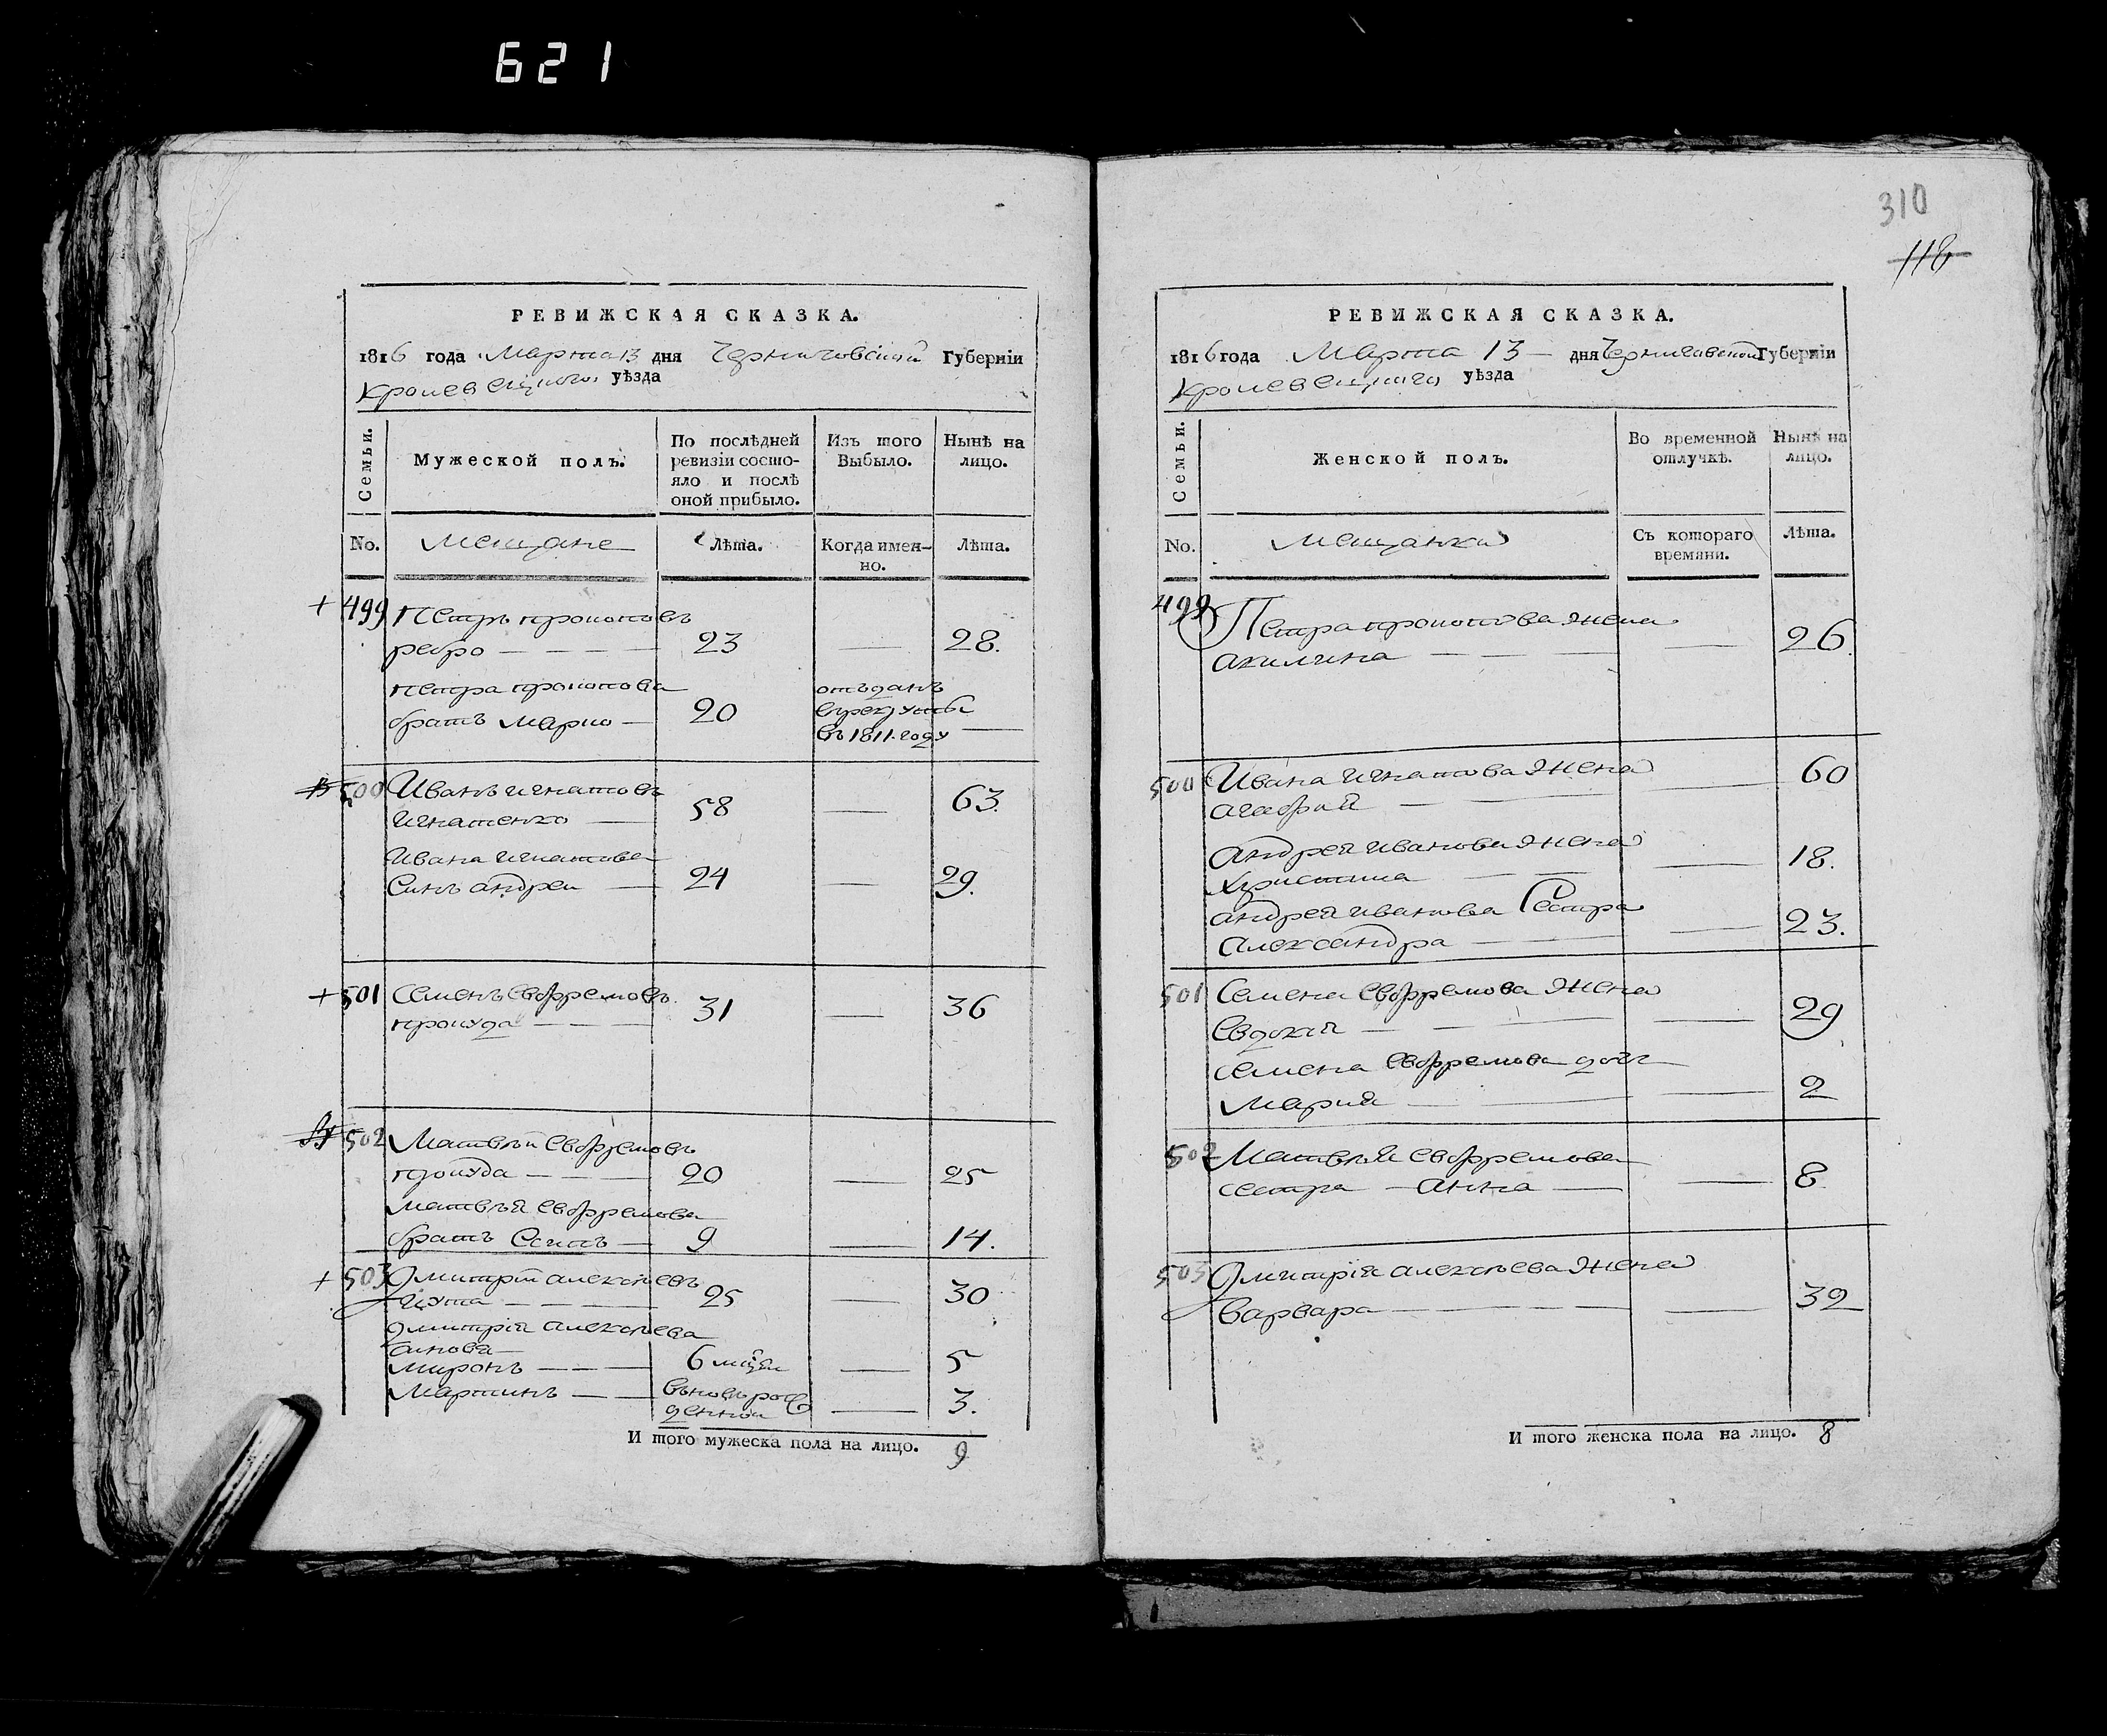 621
РЕВИЖСКАЯ СКАЗКА.
1816 года Марта 13 дня Черниговской Губерніи
Кролевецкого уѣзда
Семьи.
Мужеской полъ.
По послѣдней ревизіи состо-
яло и послѣ оной прибыло.
Изъ того Выбыло.
Нынѣ на лицо.
No. Мещане Лѣта. Когда имен-но. Лѣта.
+ 499 Петръ прокоповъ
ребро — 23 — 28.
петра прокопова
братъ Марко — 20 отъданъ
врекруты
въ 1811. году —
500 Иванъ игнатовъ
игнатенко — 58 — 63.
Ивана игнатова
Синъ андреи — 24 — 29.
+ 501 Семенъ Евфремовъ
31 — 36
502 Матвѣй Евфремовъ
20 — 25
матвѣя Евфремова
братъ — 9 — 14.
+ 503 Дмитрій алексѣевъ
25 — 30
дмитрія алексѣева
синова
миронъ — 6 — 5
Мартинъ — вновь рож
денной — 3.
И того мужеска пола на лицо. 9
310
118
РЕВИЖСКАЯ СКАЗКА.
1816 года Марта 13 — дня Черниговской Губерніи
Кролевецкого уѣзда
Семьи.
Женской полъ.
Во временной отлучкѣ.
Нынѣ на лицо.
No. Мещанки Съ котораго времяни. Лѣта.
499 Петра прокопова жена
акилина — — 26.
500 Ивана игнатова жена
агафия — — 60
андрея иванова жена
христина — — 18.
андрея иванова Сестра
александра — — 23.
501 Семена Евфремова жена
Евдокия — — 29
семена Евфремова дочь
Мария — — 2
502 Матвѣя Евфремова
сестра — анна — — 8
503 Дмитрія алексѣева жена
варвара — — 32
И того женска пола на лицо. 8